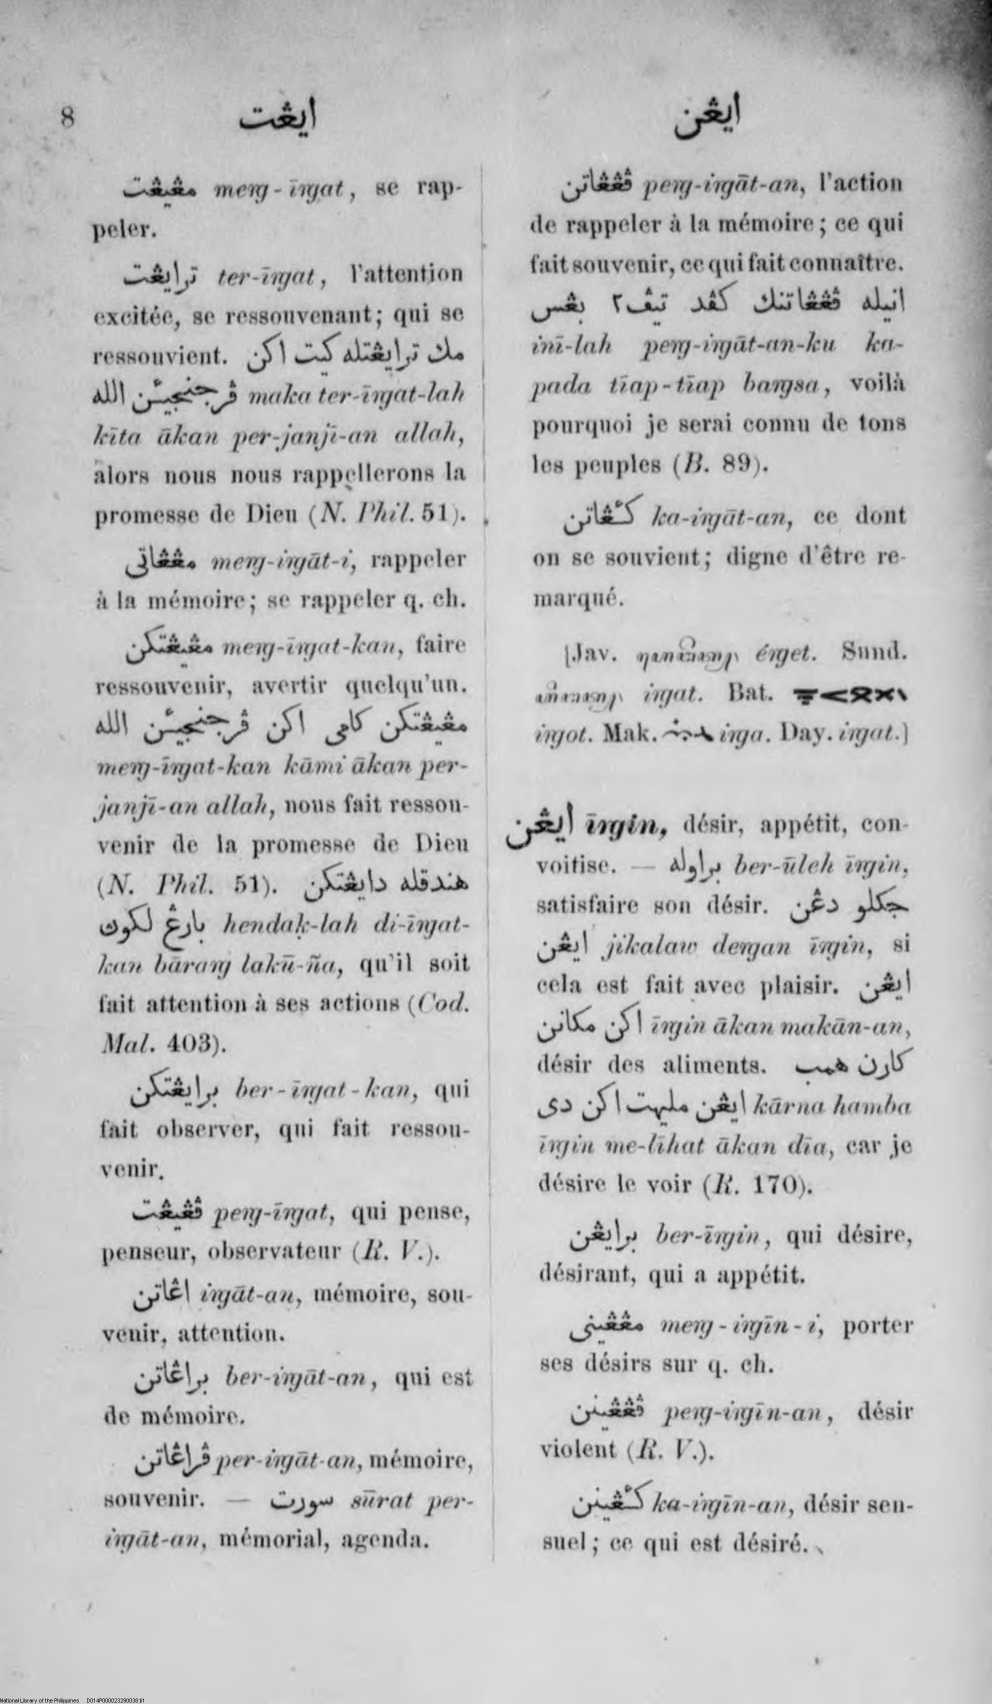 8 ايڠت ايڠن
مڠيڠت meng-īngat, se rap-
peler.
ترايڠت ter-īngat, l'attention
excitée, se ressouvenant; qui se
ressouvient. مك ترايڠتله كيت اكن
ڤرجنجيئن الله maka ter-īngat-lah
kīta ākan per-janjī-an allah,
alors nous nous rappellerons la
promesse de Dieu (N. Phil. 51).
مڠڠاتي meng-ingāt-i, rappeler
à la mémoire; se rappeler q. ch.
مڠيڠتكن meng-īngat-kan, faire
ressouvenir, avertir quelqu'un.
مڠيڠتكن كامي اكن ڤرجنجيئن الله
meng-īngat-kan kāmi ākan per-
janjī-an allah, nous fait ressou-
venir de la promesse de Dieu
(N. Phil. 51). هندقله دايڠتكن
بارڠ لكوڽ hendaḳ-lah di-īngat-
kan bārang lakū-ña, qu'il soit
fait attention à ses actions (Cod.
Mal. 403).
برايڠتكن ber-īngat-kan, qui
fait observer, qui fait ressou-
venir.
ڤڠيڠت peng-īngat, qui pense,
penseur, observateur (R. V.).
اڠاتن ingāt-an, mémoire, sou-
venir, attention.
براڠاتن ber-ingāt-an, qui est
de mémoire.
ڤراڠاتن per-ingāt-an, mémoire,
souvenir. — سورت sūrat per-
ingāt-an, mémorial, agenda.
ڤڠڠاتن peng-ingāt-an, l'action
de rappeler à la mémoire; ce qui
fait souvenir, ce qui fait connaître.
انيله ڤڠڠاتنك كڤد تيڤ٢ بڠس
inī-lah peng-ingāt-an-ku ka-
pada tīap-tīap bangsa, voilà
pourquoi je serai connu de tous
les peuples (B. 89).
كئڠاتن ka-ingāt-an, ce dont
on se souvient; digne d'être re-
marqué.
[Jav. énget. Sund.
ingat. Bat.
ingot. Mak. inga. Day. ingat.]
ايڠن īngin, désir, appétit, con-
voitise. — براوله ber-ūleh īngin,
satisfaire son désir. جكلو دڠن
ايڠن jikalaw dengan īngin, si
cela est fait avec plaisir. ايڠن
اكن مكانن īngin ākan makān-an,
désir des aliments. كارن همب
ايڠن مليهت اكن دي kārna hamba
īngin me-līhat ākan dīa, car je
désire le voir (R. 170).
برايڠن ber-īngin, qui désire,
désirant, qui a appétit.
مڠڠيني meng-ingīn-i, porter
ses désirs sur q. ch.
ڤڠڠينن peng-ingīn-an, désir
violent (R. V.).
كئڠينن ka-ingīn-an, désir sen-
suel; ce qui est désiré.
National Library of the Philippines